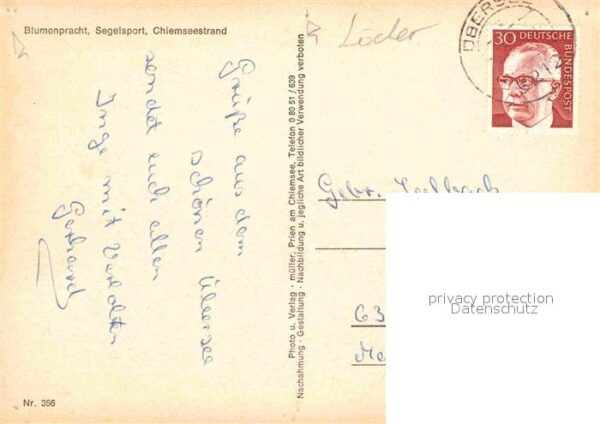 Blumenpracht, Segelsport, Chiemseestrand
Löder
ÜBERSEE
30
DEUTSCHE
BUNDESPOST
Grüße aus dem
schönen Übersee
sendet euch allen
Inge mit
Gerhard
Photo u. Verlag · müller, Prien am Chiemsee, Telefon 0 80 51 / 639
Nachahmung · Gestaltung · Nachbildung u. jegliche Art bildlicher Verwendung verboten
Gebr.
63
privacy protection
Datenschutz
Nr. 356